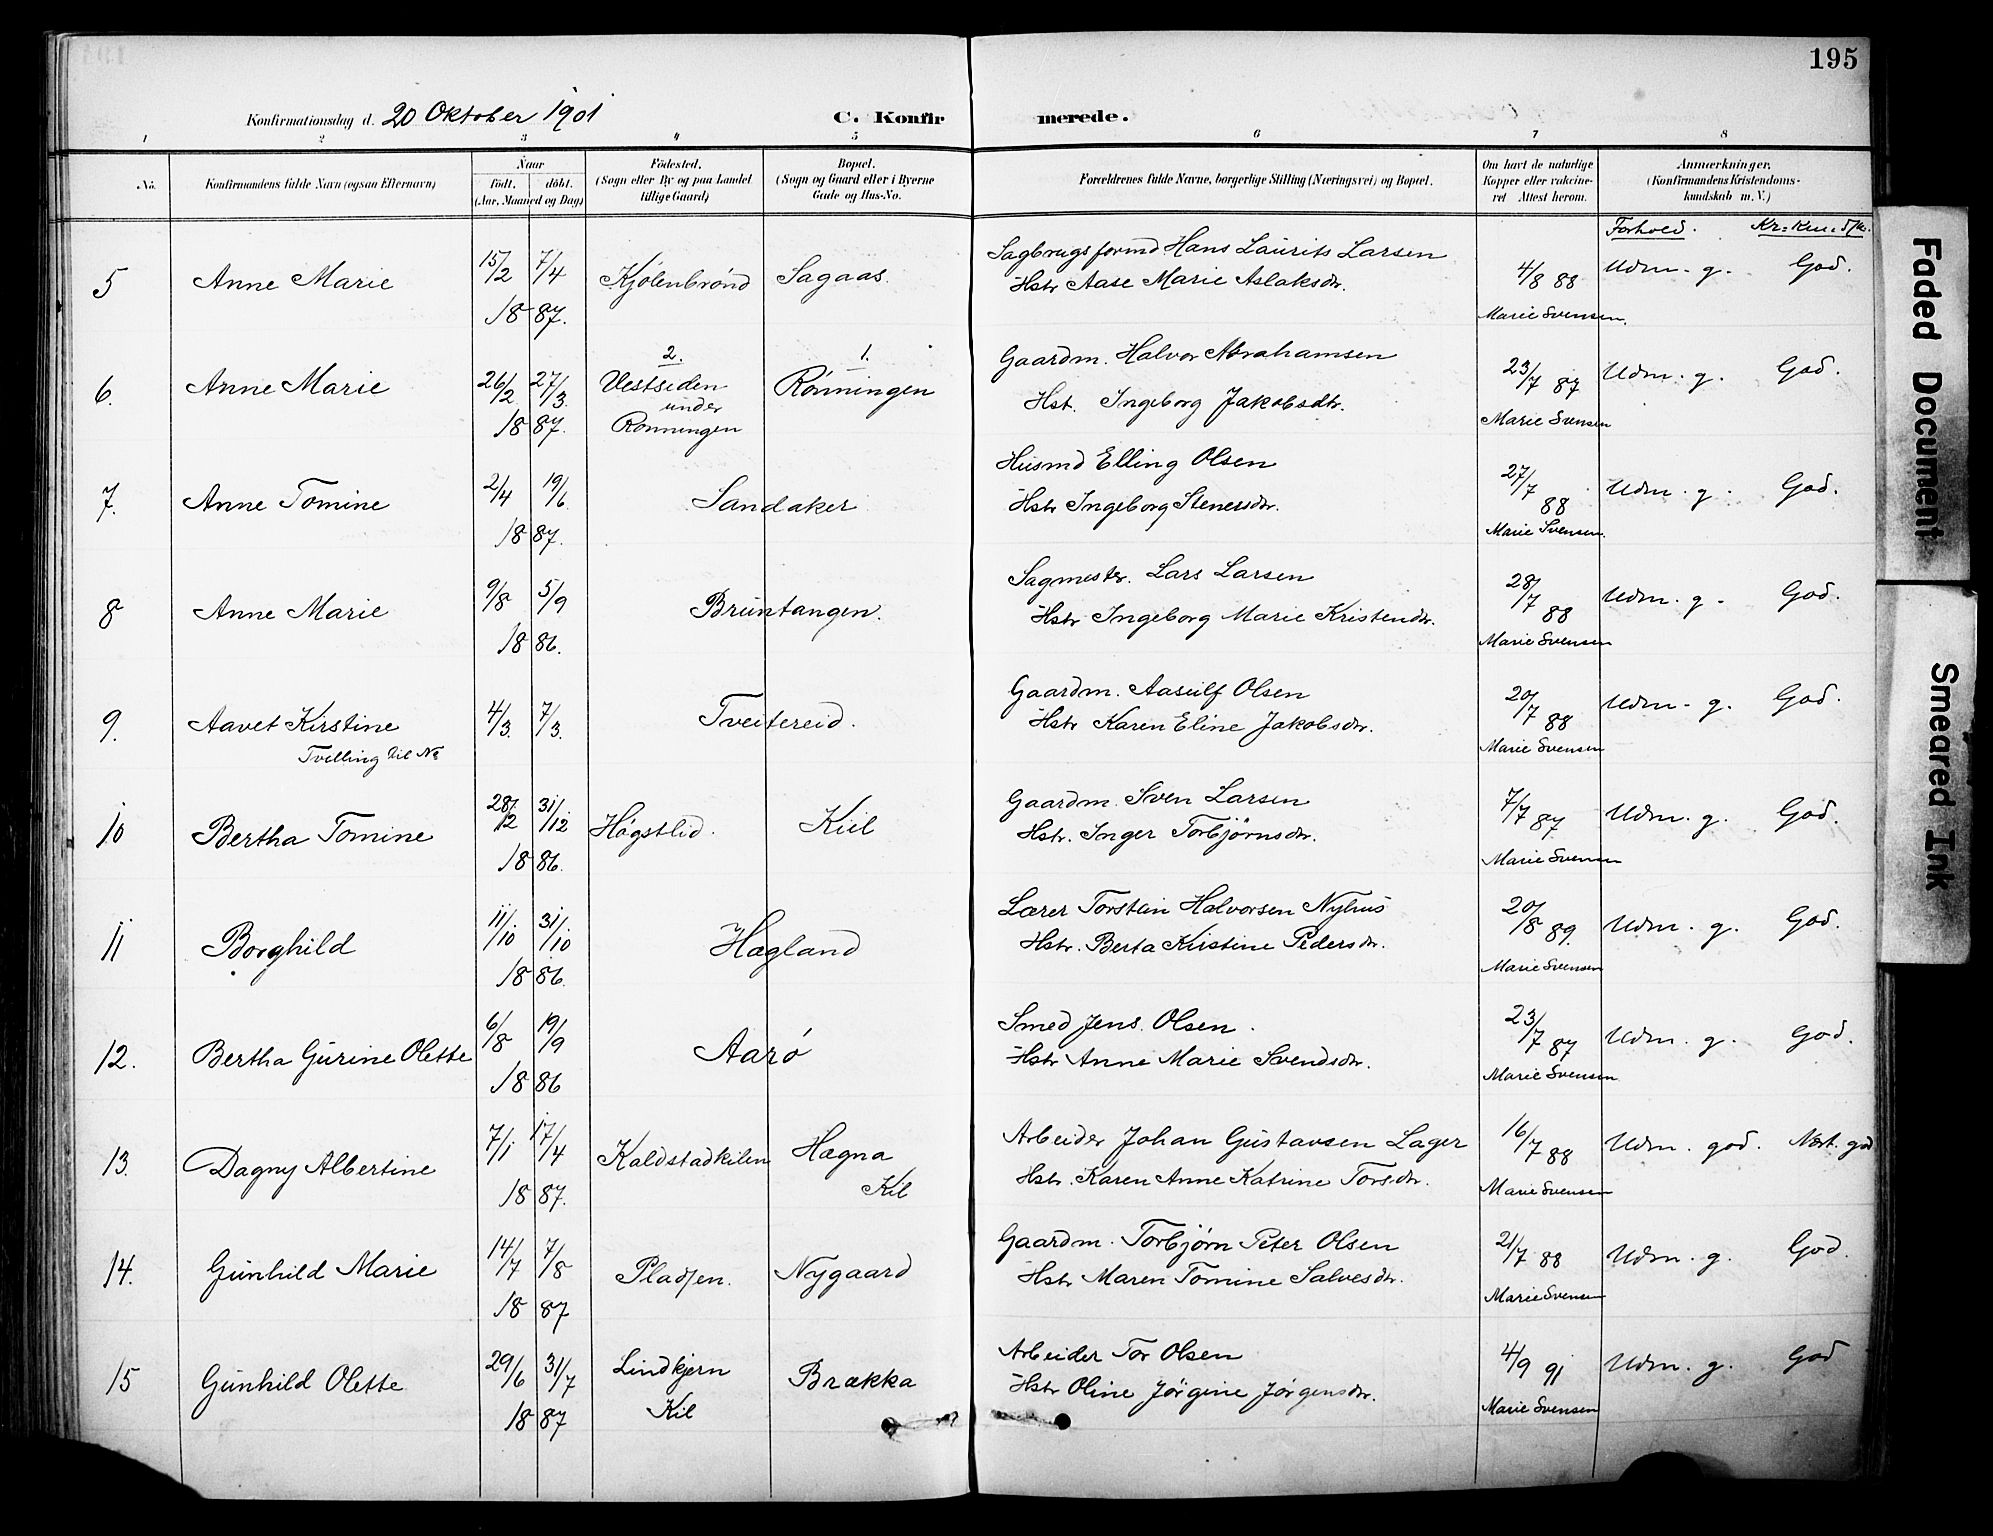 195
Konfirmationsdag d. 20 Oktober 1901 C. Konfirmerede.
1 2 3 4 5 6 7 8
No.
Konfirmandens fulde Navn (ogsaa Efternavn)
Naar
födt. döbt.
(Aar, Maaned og Dag)
Födested.
(Sogn eller By og paa Landet
tillige Gaard)
Bopæl.
(Sogn og Gaard eller i Byerne
Gade og Hus-No.
Forældrenes fulde Navne, borgerlige Stilling (Næringsvei) og Bopæl.
Om havt de naturlige
Kopper eller vakcine-
ret Attest herom.
Anmærkninger.
(Konfirmandens Kristendoms-
kundskab m.V.)
Forhold.
5 Anne Marie 15/2 7/4 Kjølenbrönd Sagaas. Sagbrugsformd Hans Laurits Larsen 4/8 88 Udm. g. God.
Hstr Aase Marie Aslaksdr.
18 87. Marie Svensen.
2. 1.
6. Anne Marie 26/2 27/3 Vestsiden Rønningen Gaardm. Halvor Abrahamsen 23/7 87 Udm. g. God.
under
Hst. Ingeborg Jakobsdtr.
18 87. Rønningen Marie Svensen
7. Anne Tomine 2/4 19/6 Sandaker Husmd Elling Olsen 27/7 88 Udm. g. God.
Hstr Ingeborg Stenersdr.
18 87. Marie Svensen.
8 Anne Marie 9/8 5/9 Bruntangen. Sagmester. Lars Larsen 28/7 88 Udm. g. God.
Hstr Ingeborg Marie Kristendr.
18 86. Marie Svensen
9. Aavet Kirstine 4/3 7/3 Tveitereid. Gaardm. Aasulf Olsen 20/7 88 Udm. g. God.
Hstr Karen Eline Jakobsdr.
Tvilling til No Marie Svensen
10 Bertha Tomine 28/12 31/12 Högstlid. Kiil Gaardm. Sven Larsen 7/7 87 Udm. g. God.
Hstr. Inger Torbjørnsdr.
18 86. Marie Svensen
11 Borghild 11/10 31/10 Hægland Lærer Torstein Halvorsen Nyhus 20/8 89. Udm. g. God.
Hstr. Berta Kirstine Pedersdr.
18 86. Marie Svensen
12. Bertha Gurine Olette 6/8 19/9 Aarö Smed Jens. Olsen. 23/7 87 Udm. g. God.
Hstr Anne Marie Svendsdr.
18 86 Marie Svensen
13. Dagny Albertine 7/1 17/4 Kaldstadkilen Hægna Arbeider Johan Gustavsen Lager 16/7 88 Udm. god. Næst. god
Kil Hstr. Karen Anne Katrine Torsdr.
18 87. Marie Svensen
14. Gunhild Marie 14/7 7/8 Pladsen. Nygaard Gaardm. Torbjørn Peter Olsen 21/7 88 Udm. g. God.
Hstr Maren Tomine Salvesdr.
18 87 Marie Svensen
15 Gunhild Olette 29/6 31/7 Lindkjern Brækka Arbeider Tor Olsen 4/9 91 Udm. g. God
Kil Hstr Oline Jörgine Jörgensdr.
18 87 Marie Svensen
Faded Document
Smeared Ink